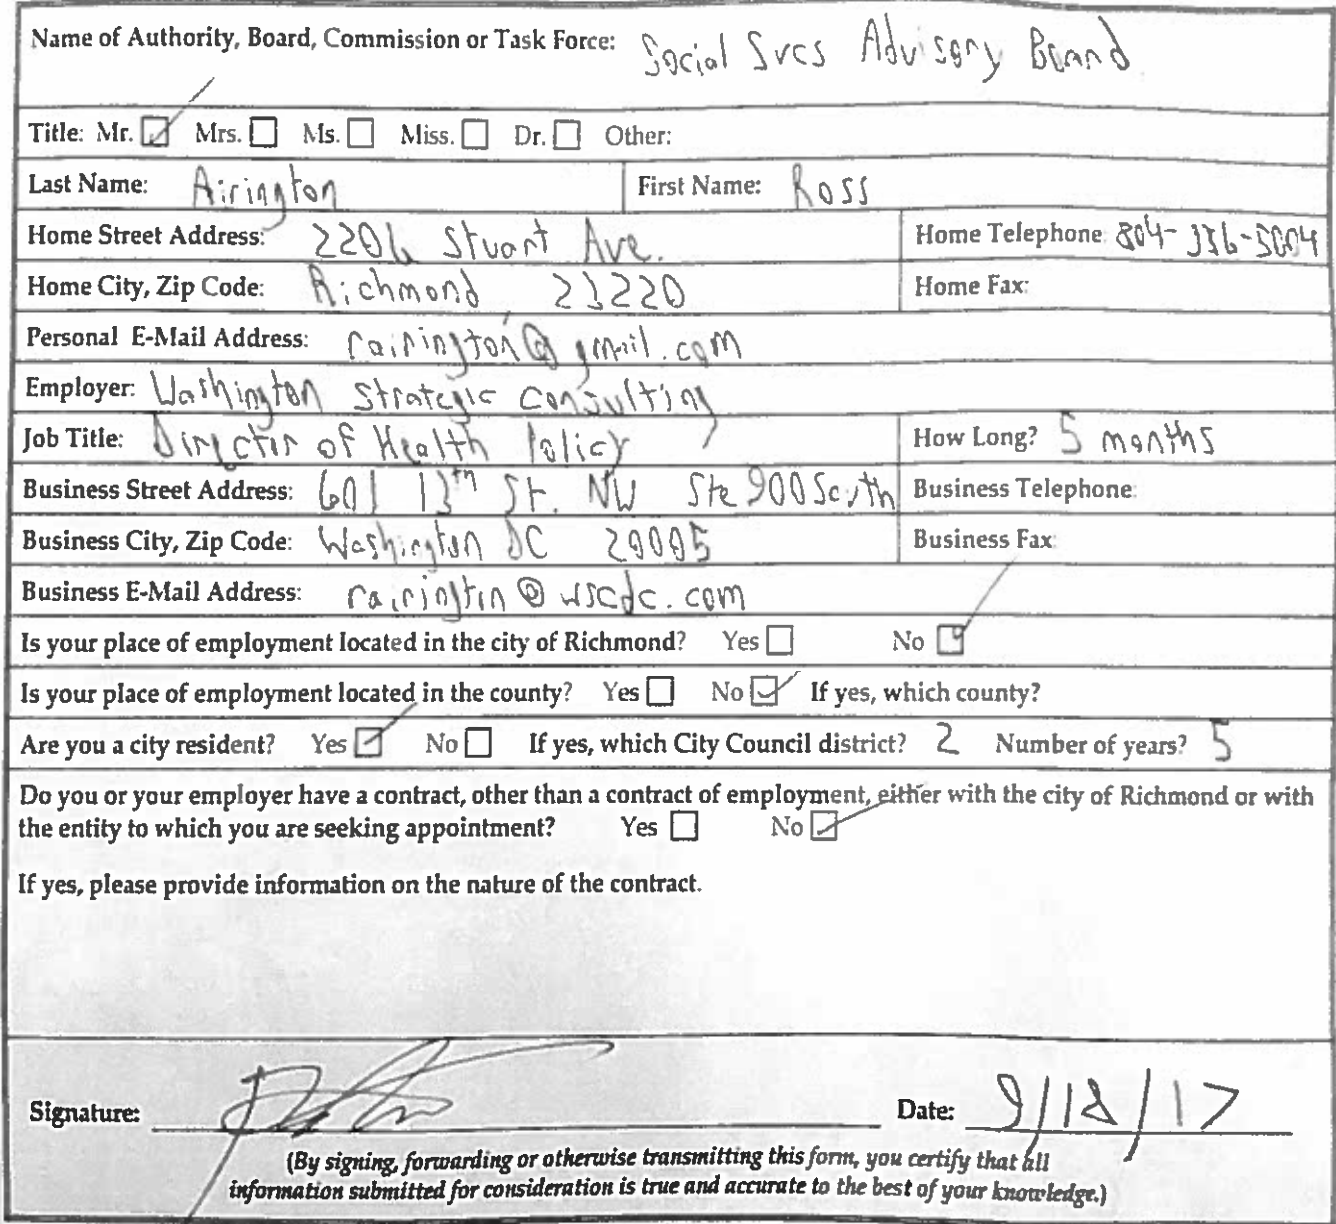 Name of Authority, Board, Commission or Task Force: Social Svcs Advisory Board
Title: Mr. Mrs. Ms. Miss. Dr. Other:
Last Name: Airington First Name: Ross
Home Street Address: 2206 Stuart Ave. Home Telephone: 804-336-5004
Home City, Zip Code: Richmond 23220 Home Fax:
Personal E-Mail Address: rairington@gmail.com
Employer: Washington Strategic Consulting
Job Title: Director of Health Policy How Long? 5 months
Business Street Address: 601 13th St. NW Ste 900 South Business Telephone:
Business City, Zip Code: Washington DC 20005 Business Fax:
Business E-Mail Address: rairington@wscdc.com
Is your place of employment located in the city of Richmond? Yes No
Is your place of employment located in the county? Yes No If yes, which county?
Are you a city resident? Yes No If yes, which City Council district? 2 Number of years? 5
Do you or your employer have a contract, other than a contract of employment, either with the city of Richmond or with
the entity to which you are seeking appointment? Yes No
If yes, please provide information on the nature of the contract.
Signature: Date: 9/18/17
(By signing, forwarding or otherwise transmitting this form, you certify that all
information submitted for consideration is true and accurate to the best of your knowledge.)